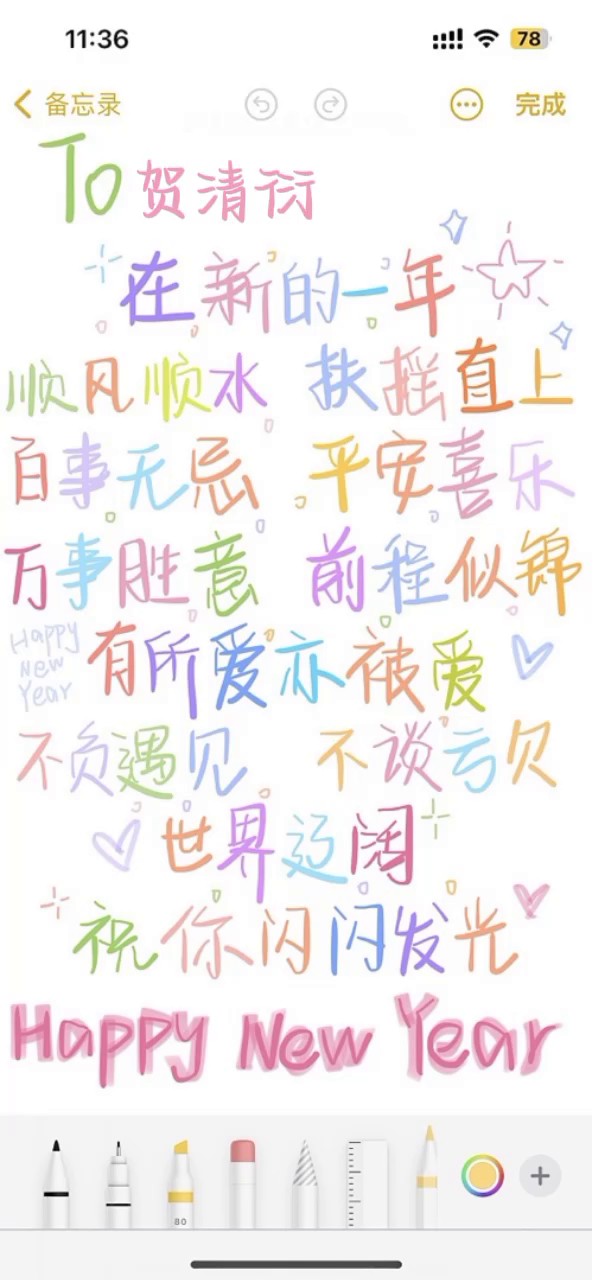 11:36 78
备忘录 完成
To 贺清衍
在新的一年
顺风顺水 扶摇直上
百事无忌 平安喜乐
万事胜意 前程似锦
Happy
New
Year
有所爱亦被爱
不负遇见 不谈亏欠
世界辽阔
祝你闪闪发光
Happy New Year
80